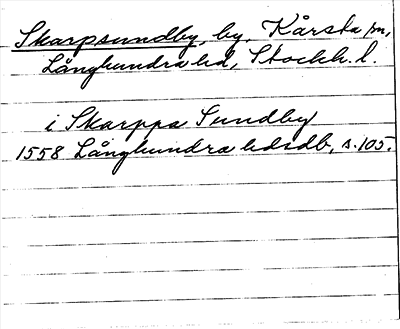 Skarpsundby, by, Kårsta sn,
Långhundra hd, Stockh. l.
i Skarppa Sundby
1558 Långhundra hdsdb, s. 105.